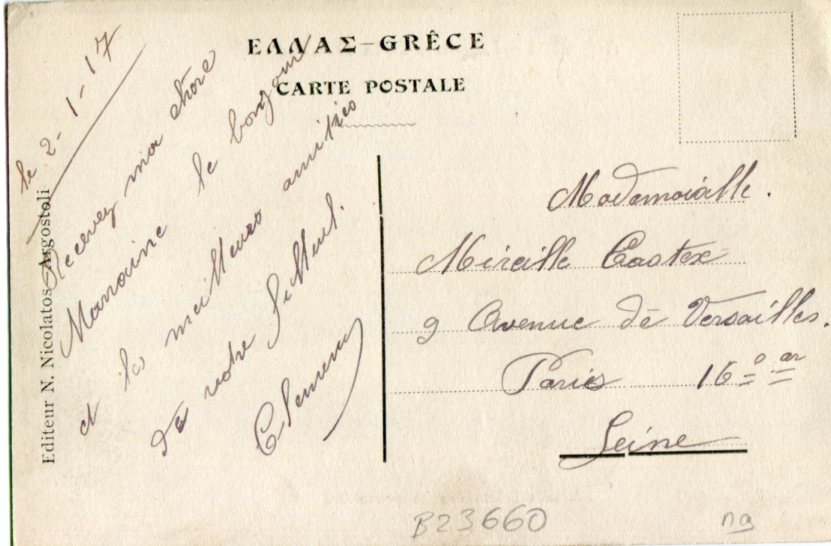 ΕΛΛΑΣ–GRÊCE
CARTE POSTALE
Editeur N. Nicolatos Argostoli
le 2-1-17
Recevez ma chère
Marraine le bonjour
et les meilleures amitiés
de votre filleul.
Mademoiselle.
Mireille Castex
9 Avenue de Versailles.
Paris 16e ar
Seine
B23660 na